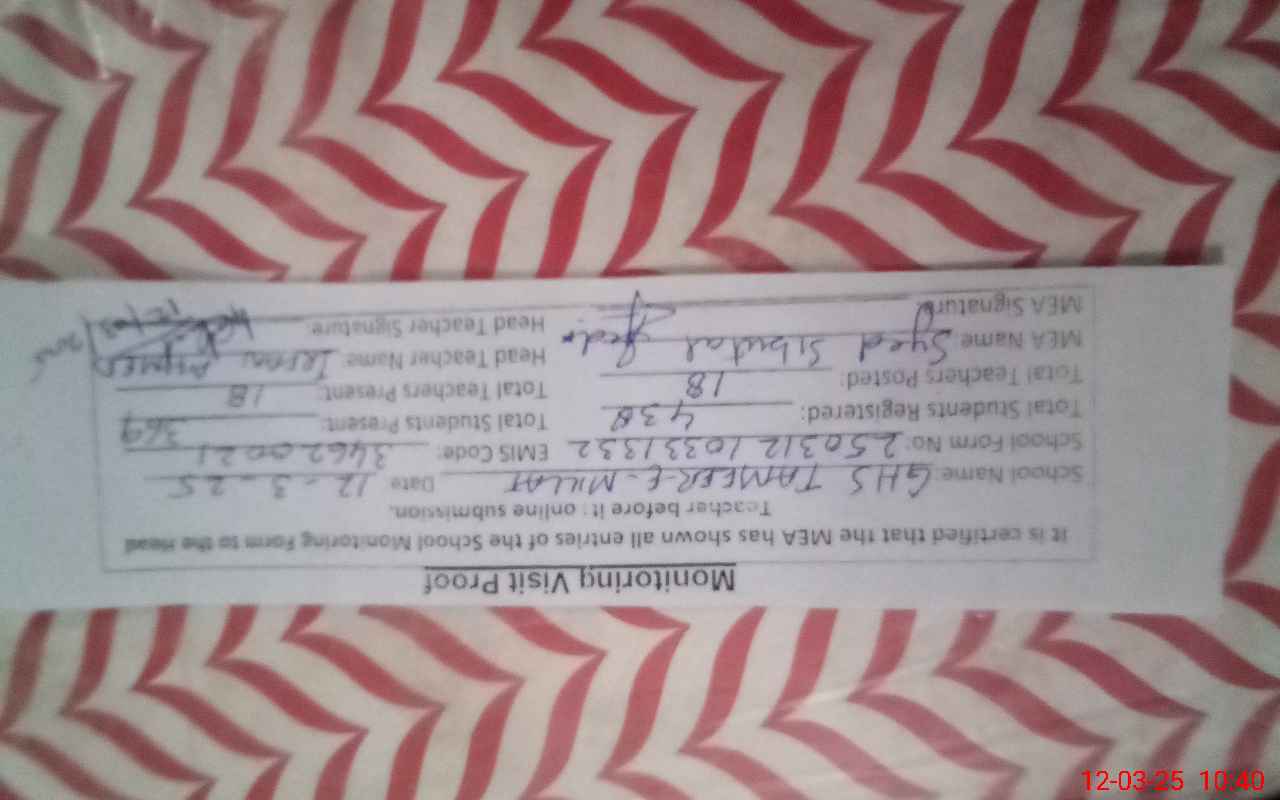 Monitoring Visit Proof
It is certified that the MEA has shown all entries of the School Monitoring Form to the Head
Teacher before it : online submission.
School Name: GHS TAMEER-E-MILLAT Date 12-3-25
School Form No: 2503121033 1332 EMIS Code: 34620021
Total Students Registered: 438 Total Students Present: 369
Total Teachers Posted: 18 Total Teachers Present: 18
MEA Name: Syed Head Teacher Name:
MEA Signature Head Teacher Signature:
12-03-25 10:40